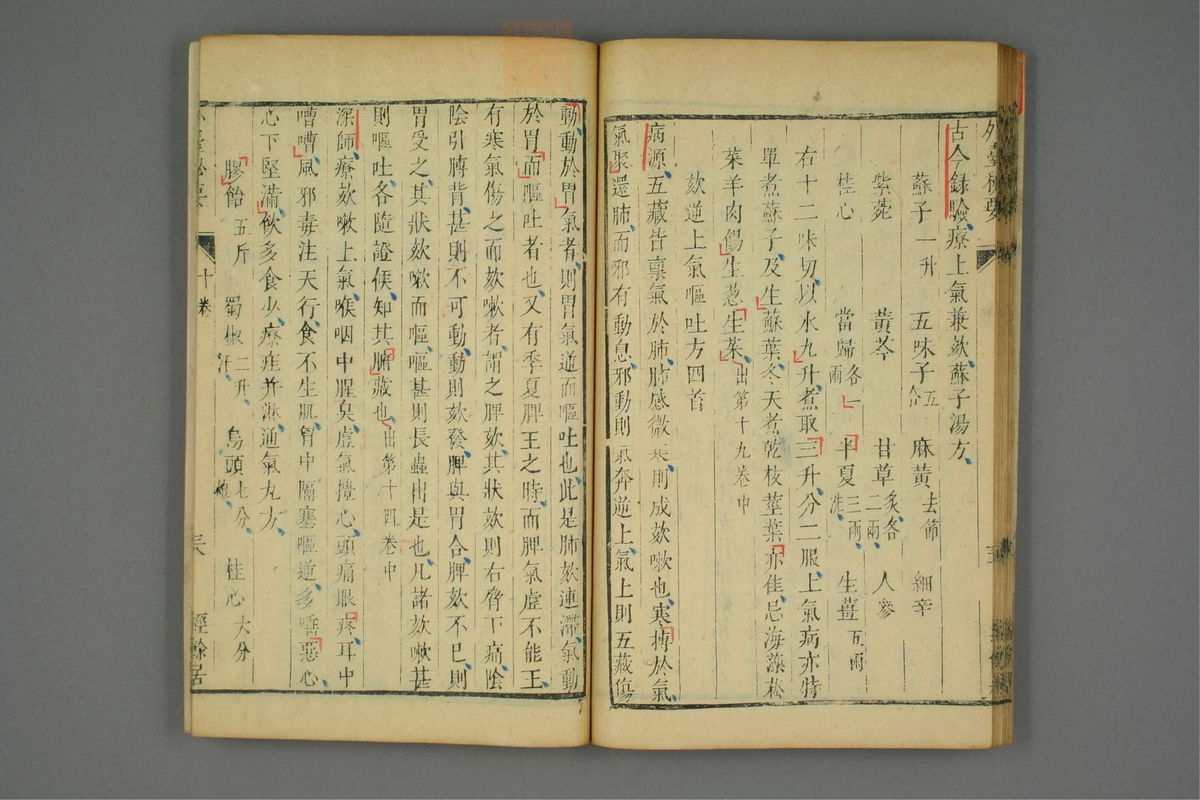 外臺秘要
古今録驗療上氣兼欬蘇子湯方
蘇子一升 五味子五合 麻黃去節 細辛
紫菀 黃芩 甘草炙各二兩 人參
桂心 當歸各一兩 半夏三兩洗 生薑五兩
右十二味切以水九升煮取三升分二服上氣病亦特
單煮蘇子及生蘇葉冬天煮乾枝莖葉亦佳忌海藻菘
菜羊肉餳生葱生菜出第十九卷中
欬逆上氣嘔吐方四首
病源五藏皆禀氣於肺肺感微寒則成欬嗽也寒搏於氣
氣聚還肺而邪有動息邪動則氣奔逆上氣上則五藏傷
動動於胃氣者則胃氣逆而嘔吐也此是肺欬連滯氣動
於胃而嘔吐者也又有季夏脾王之時而脾氣虛不能王
有寒氣傷之而欬嗽者謂之脾欬其狀欬則右脅下痛陰
陰引膊背甚則不可動動則欬發脾與胃合脾欬不已則
胃受之其狀欬嗽而嘔嘔甚則長蟲出是也凡諸欬嗽甚
則嘔吐各隨證候知其腑藏也出第十四卷中
深師療欬嗽上氣喉咽中腥臭虛氣攪心頭痛眼疼耳中
嘈嘈風邪毒注天行食不生肌胷中隔塞嘔逆多唾惡心
心下堅滿飲多食少療疰并淋通氣丸方
膠飴五斤 蜀椒二升汗 烏頭七分炮 桂心六分
外臺秘要 十卷 經餘居